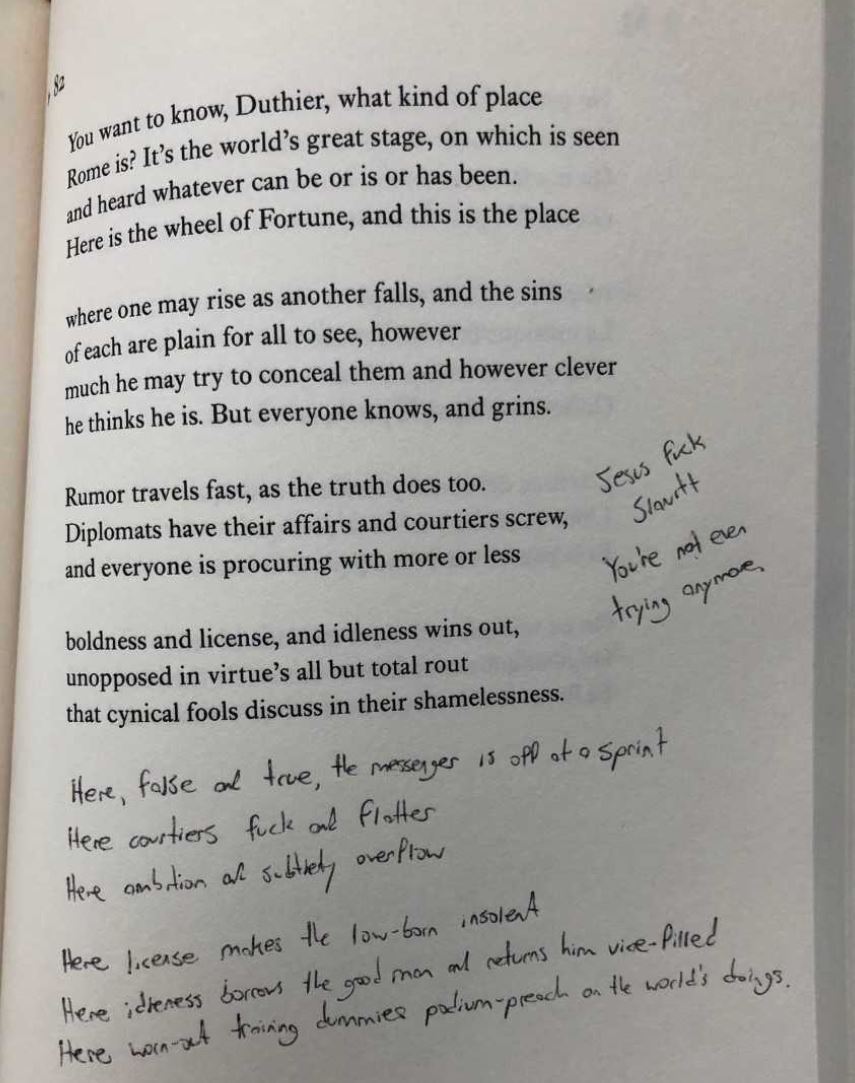 , 82
You want to know, Duthier, what kind of place
Rome is? It's the world's great stage, on which is seen
and heard whatever can be or is or has been.
Here is the wheel of Fortune, and this is the place
where one may rise as another falls, and the sins
of each are plain for all to see, however
much he may try to conceal them and however clever
he thinks he is. But everyone knows, and grins.
Rumor travels fast, as the truth does too.
Diplomats have their affairs and courtiers screw,
and everyone is procuring with more or less
boldness and license, and idleness wins out,
unopposed in virtue's all but total rout
that cynical fools discuss in their shamelessness.
Jesus fuck
Slavitt
You're not even
trying anymore.
Here, false and true, the messenger is off at a sprint
Here courtiers fuck and flatter
Here ambition and subtlety overflow
Here license makes the low-born insolent
Here idleness borrows the good man and returns him vice-filled
Here worn-out training dummies podium-preach on the world's doings.